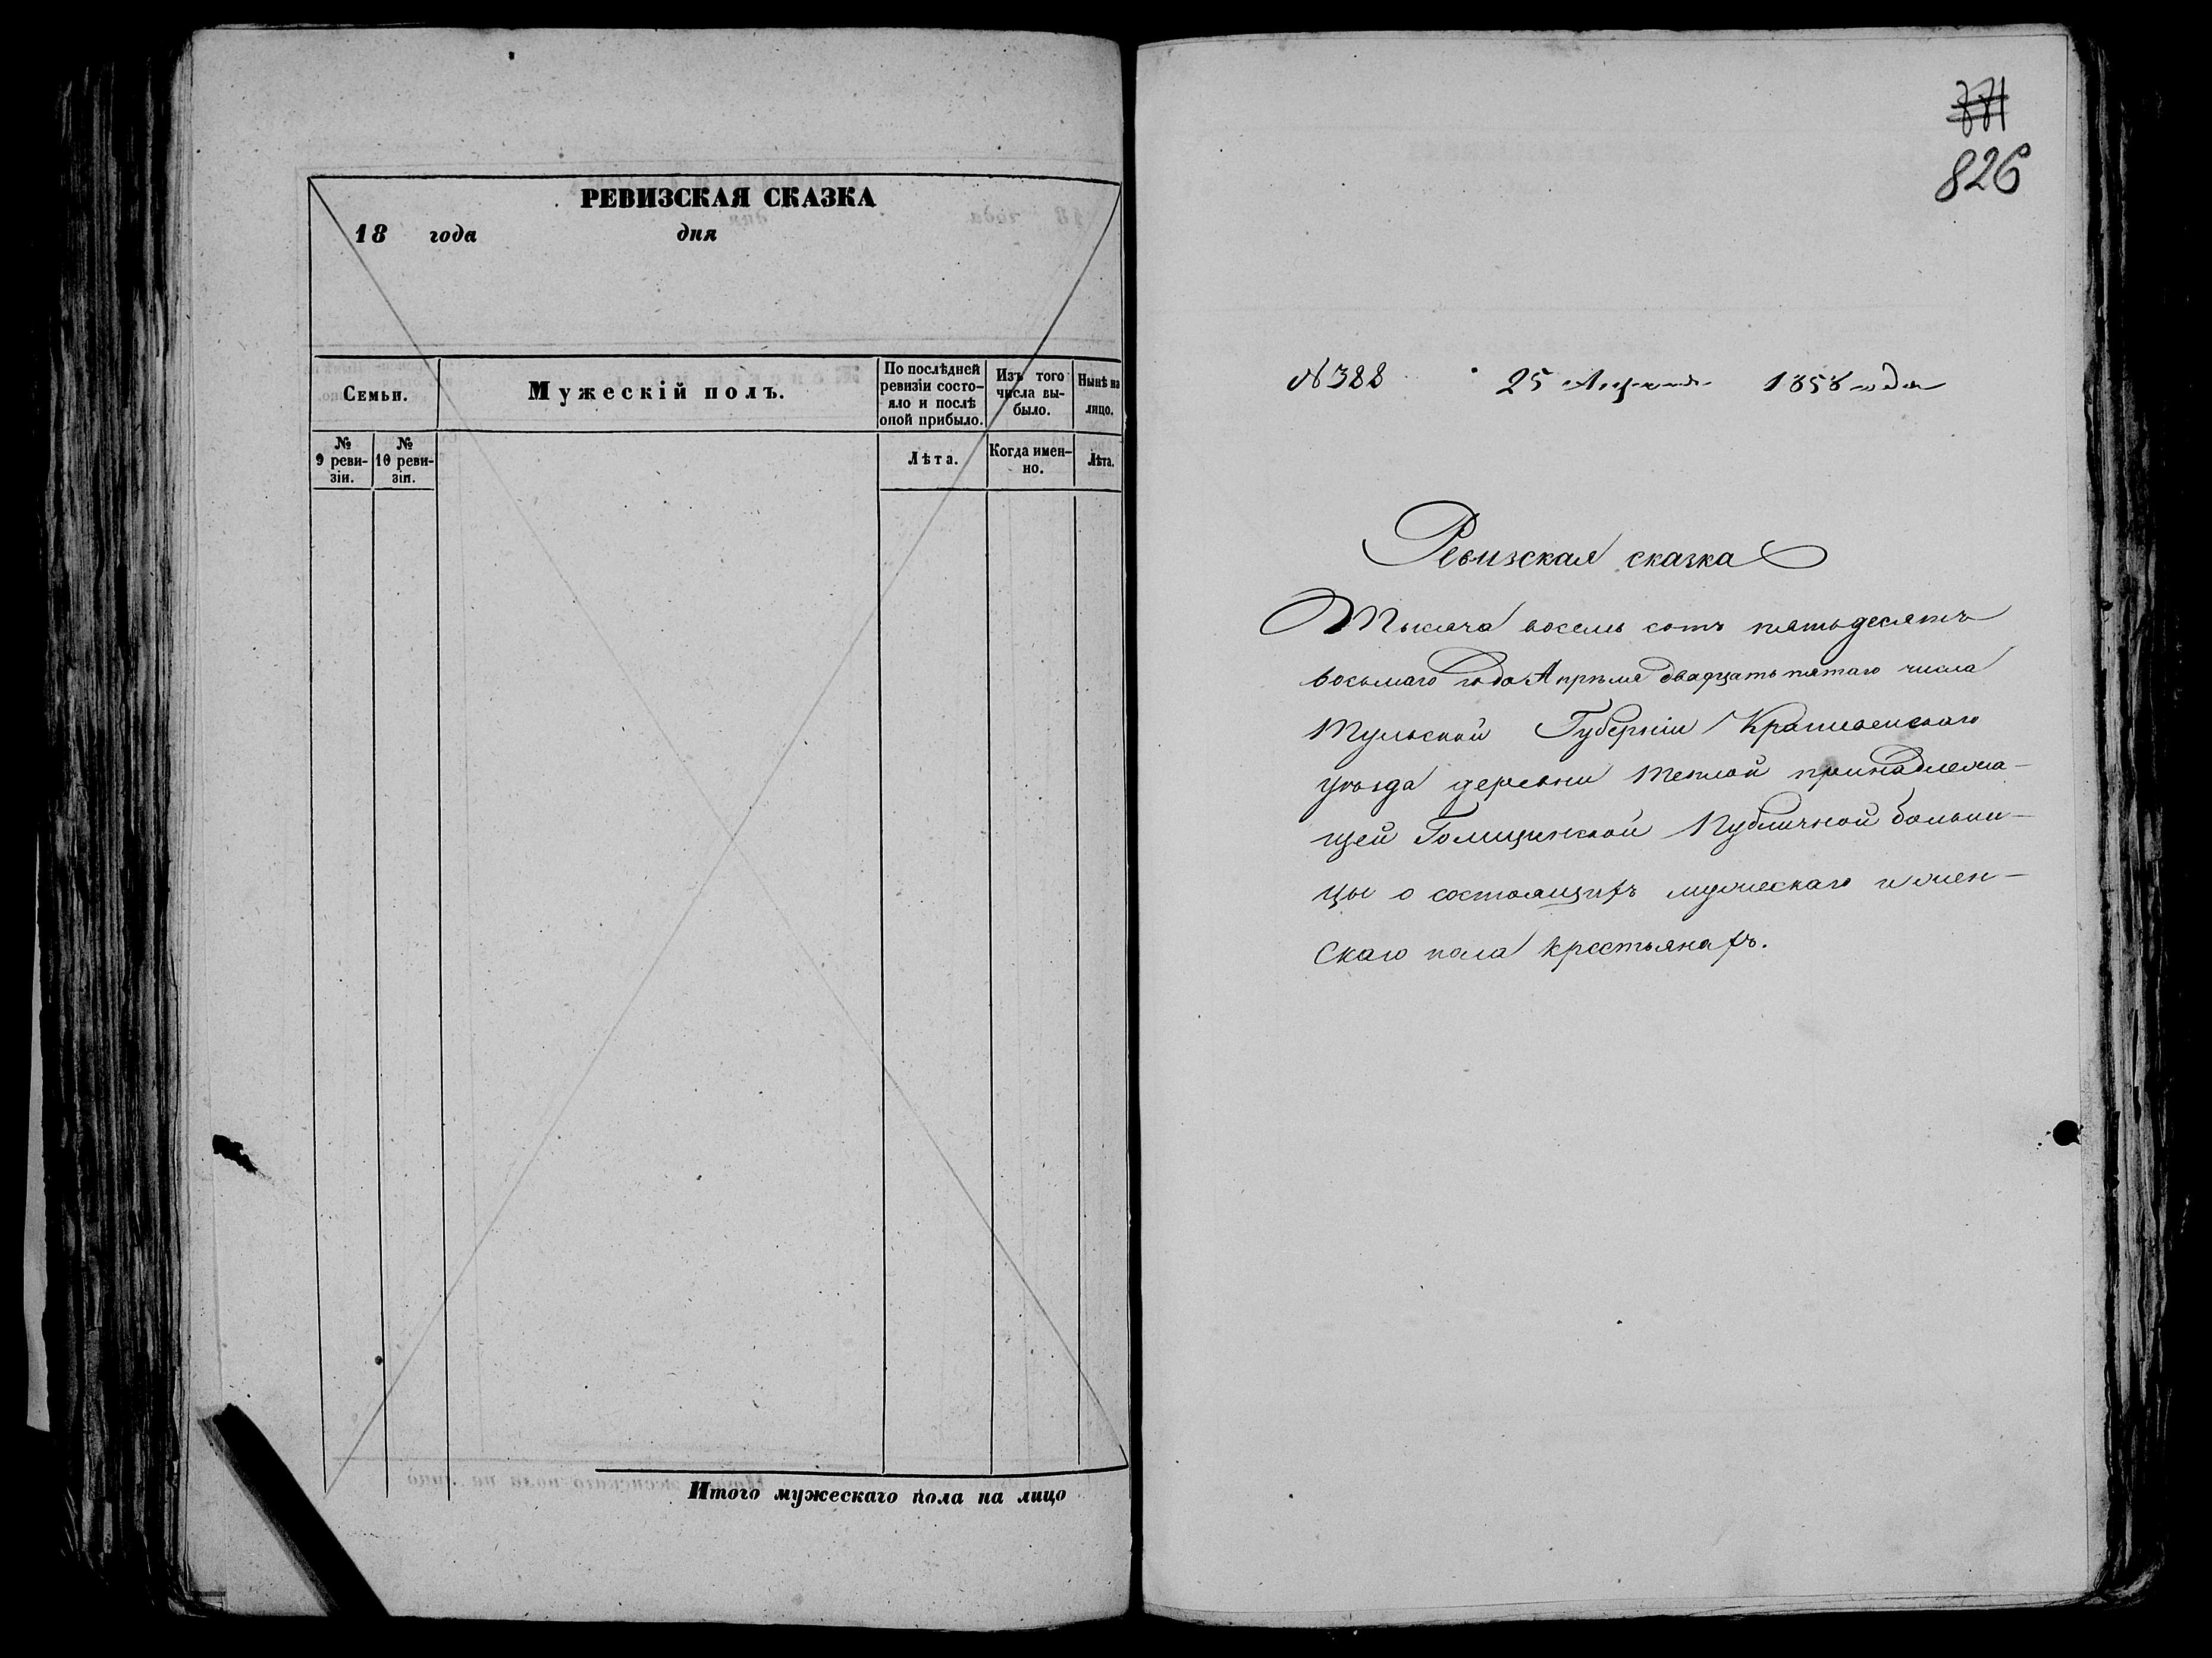 РЕВИЗСКАЯ СКАЗКА
18 года дня
Семьи.
Мужескій полъ.
По послѣдней
ревизіи состо-
яло и послѣ
оной прибыло.
Изъ того
числа вы-
было.
Нынѣ на
лицо.
№
9 реви-
зіи.
№
10 реви-
зіи.
Лѣта.
Когда имен-
но.
Лѣта.
Итого мужескаго пола на лицо
371
826
№ 388 25 Апреля 1858 года
Ревизская сказка
Тысяча восемь сотъ пятьдесятъ
восьмаго года Апрѣля двадцать пятаго числа
Тульской Губерніи Крапивенскаго
уѣзда деревни Теплой принадлежа-
щей Голицинской Публичной больни-
цы о состоящихъ мужескаго и жен-
скаго пола крестьянахъ.